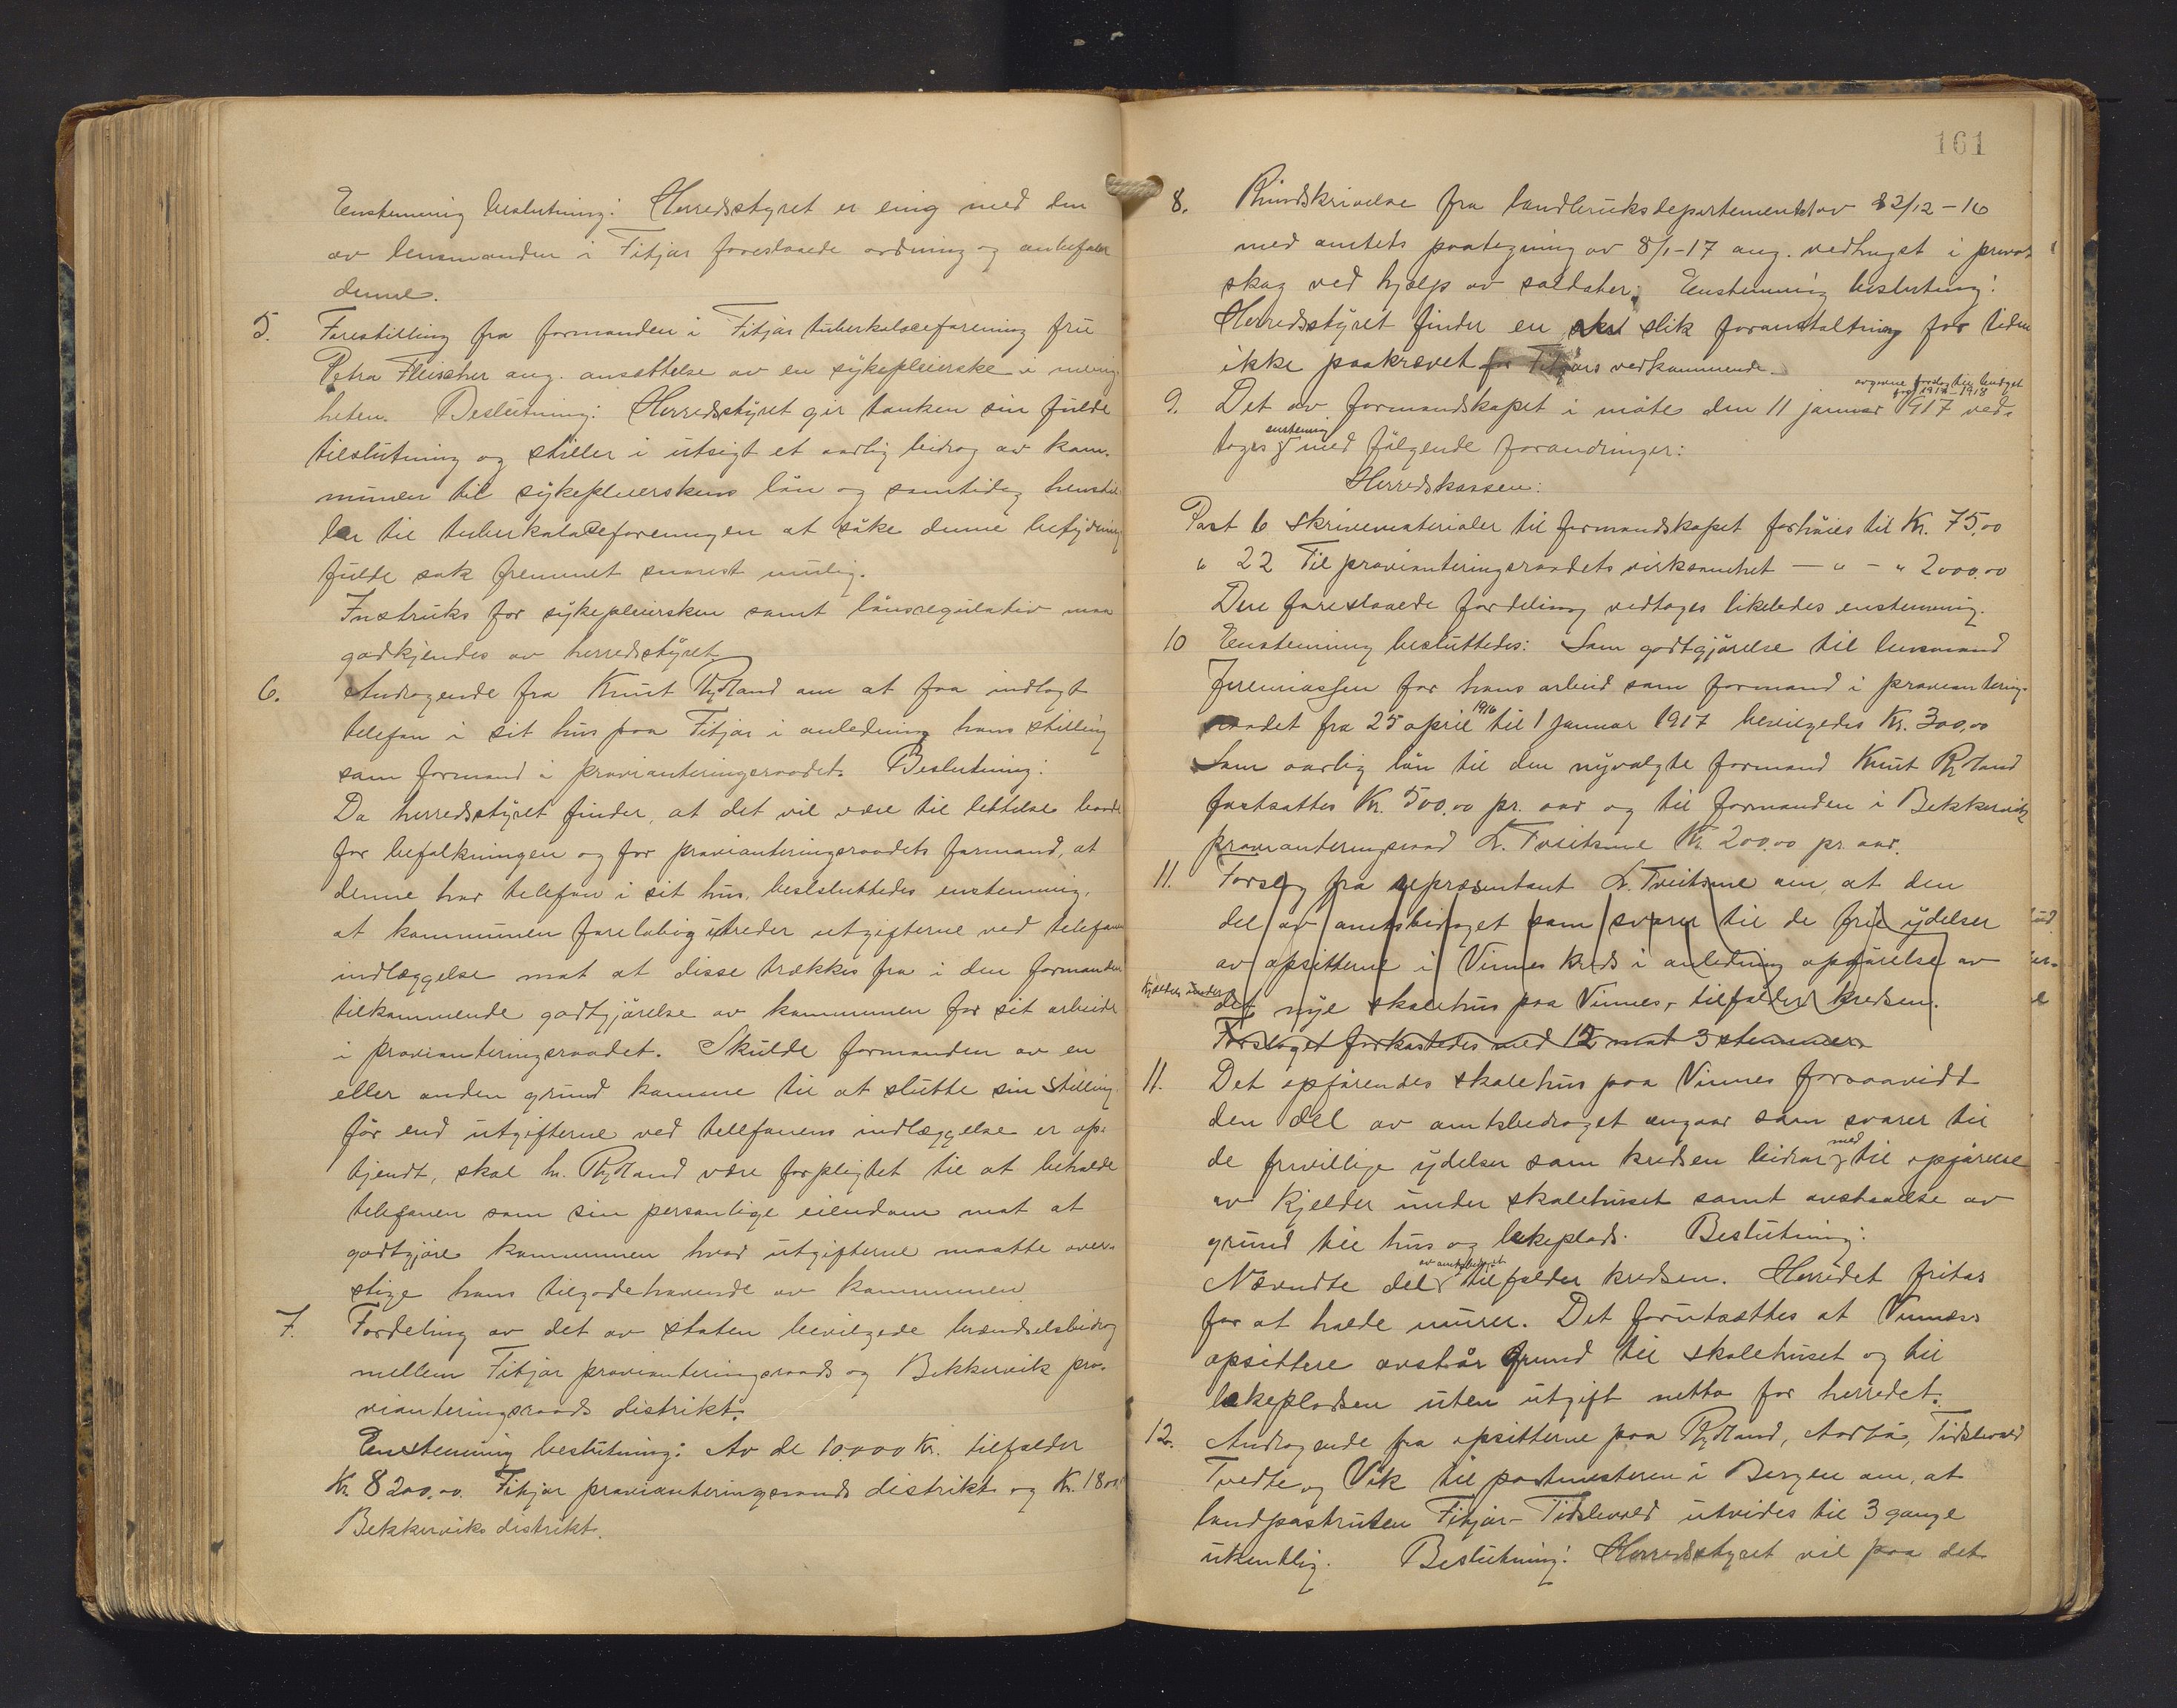 Enstemmig beslutning: Herredsstyret er einig med den
av lensmanden i Fitjar foreslaaede ordning og anbefaler
denne.
5. Forestilling fra formanden i Fitjar tuberkuloseforening fru
Petra Fleischer ang. ansættelse av en sykepleierske i menig-
heten. Beslutning: Herredsstyret gir tanken sin fulde
tilslutning og stiller i utsigt et aarlig bidrag av kom-
munen til sykepleierskens løn og samtidig henstil-
ler til tuberkuloseforeningen at søke denne betydning
fulde sak fremmet snarest mulig.
Instruks for sykepleiersken samt lønsregulativ maa
godkjendes av herredsstyret
6. Andragende fra Knut Rydland om at faa indlagt
telefon i sit hus paa Fitjar i anledning hans stilling
som formand i provianteringsraadet. Beslutning:
Da herredsstyret finder, at det vil være til lettelse baade
for befolkningen og for provianteringsraadets formand, at
denne har telefon i sit hus, beslsluttedes enstemmig,
at kommunen foreløbig utreder utgifterne ved telefonens
indlæggelse mot at disse trækkes fra i den formanden
tilkommende godtgjørelse av kommunen for sit arbeide
i provianteringsraadet. Skulde formanden av en
eller anden grund komme til at slutte sin stilling
før end utgifterne ved telefonens indlæggelse er op-
tjendt, skal hr. Rydland være forpligtet til at beholde
telefonen som sin personlige eiendom mot at
godtgjøre kommunen hvad utgifterne maatte over-
stige hans tilgodehavende av kommunen
7. Fordeling av det av staten bevilgede brændselsbidrag
mellem Fitjar provianteringsraads og Bekkervik pro-
vianteringsraads distrikt.
Enstemmig beslutning: Av de 10.000 Kr. tilfalder
Kr. 8200,00 Fitjar provianteringsraads distrikt og Kr. 1800,
Bekkerviks distrikt.
161
8. Rundskrivelse fra landbruksdepartementet av 22/12 - 16
med amtets paategning av 8/1-17 ang. vedhugst i privat
skog ved hjælp av soldater. Enstemmig beslutning:
Herredsstyret finder en slik foranstaltning for tiden
ikke paakrævet for Fitjars vedkommende.
avgivne forslag til budget
for 1917-1918
9. Det av formandskapet i møte den 11 januar 1917 ved-
enstemmig
toges med følgende forandringer:
Herredskassen:
Post 6 Skrivematerialer til formandskapet forhøies til Kr. 75,00
" 22 Til provianteringsraadets virksomhet — " — " 2000,00
Den foreslaaede fordeling vedtages likeledes enstemmig.
10 Enstemmig besluttedes: Som godtgjørelse til lensmand
Jeremiassen for hans arbeid som formand i proviantering-
1916
raadet fra 25 april til 1 januar 1917 bevilgedes Kr. 300,00
Som aarlig løn til den nyvalgte formand Knut Rydland
fastsattes Kr. 500,00 pr. aar og til formanden i Bekkervik
provianteringsraad L. Tveitsme Kr. 200,00 pr. aar.
11. Forslag fra repræsentant L. Tveitsme om, at den
del av amtsbidraget som svarer til de frie ydelser
av opsitterne i Vinnes kreds i anledning opførelse av
det nye skolehus paa Vinnes, tilfalder kredsen.
Forslaget forkastedes med 12 mot 3 stemmer.
11. Det opførendes skolehus paa Vinnes forsaavidt
den del av amtsbidraget angaar som svarer til
med
de frivillige ydelser som kredsen bidrar til opførelse
av Kjelder under skolehuset samt avstaaelse av
grund til hus og lekeplads. Beslutning:
av amtsbidraget
Nævndte del tilfalder kredsen. Herredet fritas
for at holde murer. Det forutsættes at Vinnes
opsittere avstår Grund til skolehuset og til
lekepladsen uten utgift netto for herredet.
12. Andragende fra opsitterne paa Rydland, Aarbø, Tidslevold
Tvedte og Vik til postmesteren i Bergen om, at
landpostruten Fitjar - Tidslevold utvides til 3 gange
ukentlig. Beslutning: Herredsstyret vil paa det